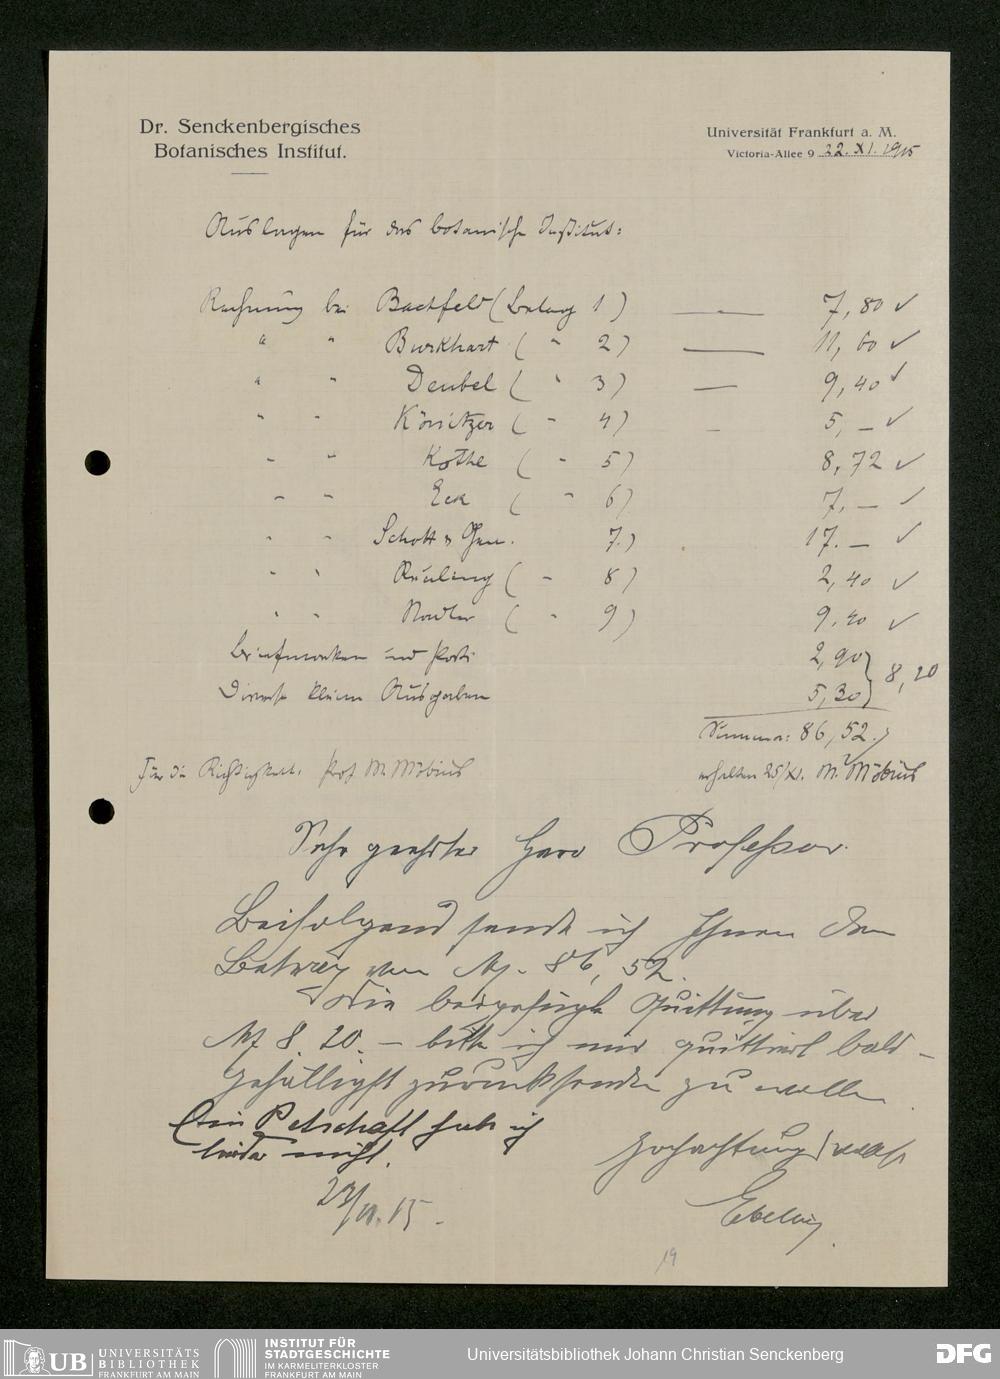 Dr. Senckenbergisches
Botanisches Institut.
Universität Frankfurt a. M.
Victoria-Allee 9 22. XI. 1915
Auslagen für das botanische Institut:
Rechnung bei Bachfeld (Beleg 1) — 7,80 ✓
" " Burkhart ( " 2) — 11,60 ✓
" " Deubel ( " 3) — 9,40 ✓
" " Könitzer ( " 4) — 5,— ✓
" " Kothe ( " 5) 8,72 ✓
" " Eck ( " 6) 7,— ✓
" " Schott & Gen. 7.) 17.— ✓
" " ( " 8) 2,40 ✓
" " ( " 9) 9.40 ✓
Briefmarken und Porti 2,90
Diverse kleine Ausgaben 5,30 } 8,20
Summa: 86,52.
Für die Richtigkeit. Prof M. Möbius
erhalten 25/XI. M. Möbius
Sehr geehrter Herr Professor.
Beifolgend sende ich Ihnen den
Betrag von M. 86,52.
Die beigefügte Quittung über
M 8.20.— bitte ich mir quittiert bald-
gefälligst zurücksenden zu wollen.
Ein Petschaft habe ich
leider nicht.
Hochachtungsvoll
23/11.15.
Ebeling
19
UB UNIVERSITÄTS
BIBLIOTHEK
FRANKFURT AM MAIN
INSTITUT FÜR
STADTGESCHICHTE
IM KARMELITERKLOSTER
FRANKFURT AM MAIN
Universitätsbibliothek Johann Christian Senckenberg
DFG